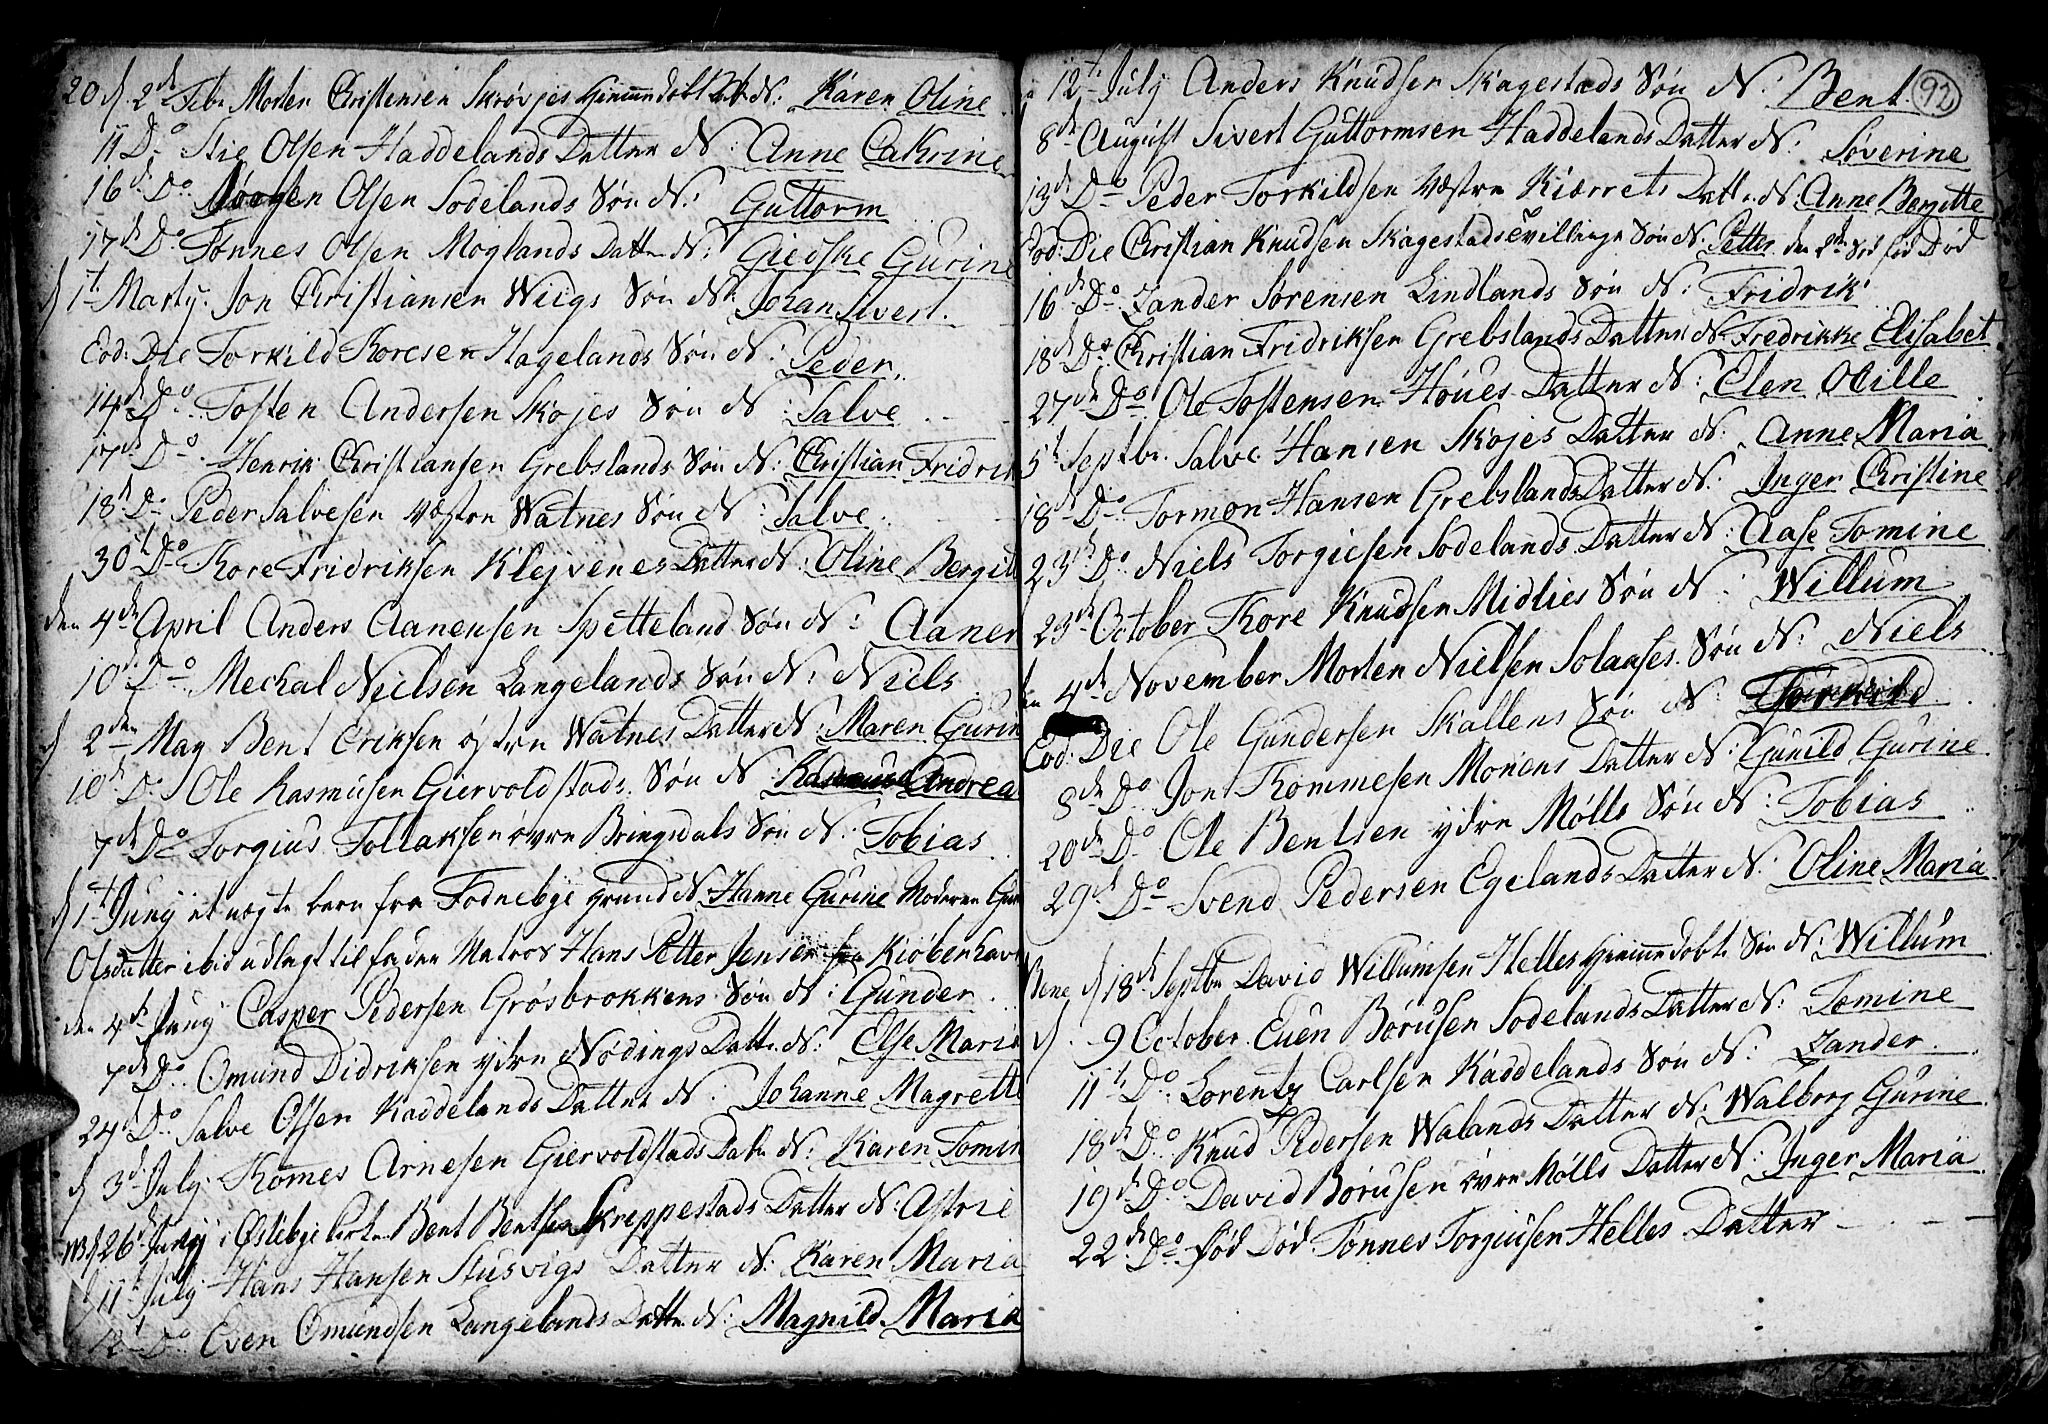 20 d. 2de Febr Morten Christensen Skrøvjes Hiemmedøbt B. N: Karen Oline
11 Do Stie Olsen Haddelands Datter N: Anne Catrine
16d. Do Jørgen Olsen Sodelands Søn N: Guttorm
17de Do Tønnes Olsen Moglands Datter N: Giedske Gurine
d 1t Marty. Jon Christiansen Wiigs Søn N. Johan Sivert.
Eod: Die Torkild Koresen Hagelands Søn N: Peder.
14de Do. Tosten Andersen Skojes Søn N: Salve
17de Do. Henrik Christiansen Grebslands Søn N: Christian Fridrik
18d Do Peder Salvesen Vestre Watnes Søn N: Salve
30t Do Kore Fridriksen Klejvenes Datter N: Oline Bergit
den 4de April Anders Aanensen Spetteland Søn N: Aanen
10d. Do Mechal Nielsen Langelands Søn N: Niels
d 2den May Bent Eriksen østre Watnes Datter N: Maren Gurin
10d Do Ole Rasmusen Giervoldstads Søn N: Andrea
7de Do Torgius Tollaksen øvre Bringsdals Søn N: Tobias
d 1t Juny et uægte barn fra Fodnebye grund N. Hanne Gurine Moderen
Olsdatter ibid udlagt til fader Matros Hans Petter Jensen fra Kiøbenhavn
den 4de Juny Casper Pedersen Grosbrokkens Søn N: Gunder
7de Do Omund Didriksen ydre Nødings Datt. N: Else Maria
24d Do Salve Olsen Kaddelands Datter N: Johanne Magrette
d 3d July. Komes Arnesen Giervoldstads Datr N: Karen Tomin
NB d 26d Juny i Øslebye kirke Bent Bentsen Kreppestads Datter N: Astrie
d 11t July Hans Hansen Stusvigs Datter N: Karen Maria
12t Do Even Omundsen Langelands Datter N: Magnild Maria
92
12t July Anders Knudsen Skagestads Søn N: Bent.
8de August Sivert Guttormsen Haddelands Datter N: Søverine
13de Do Peder Torkildsen Vestre Kiærrets Datt. N: Anne Bergitte
Eod: Die Christian Knudsen Skagestads tvillinge Søn N. Petter den 2den Søn fød Død
16d Do Zander Sørensen Lindlands Søn N: Fridrik
18d Do Christian Fridriksen Grebslands Datter N. Fredrikke Elisabet
27de Do Ole Tostensen Høues Datter N: Elen Otille
5t Septbr. Salve Hansen Skojes Datter N. Anne Maria
18d Do Tormon Hansen Grebslands Datter N. Inger Christine
23de Do Niels Torgiesen Sodelands Datter N: Aase Tomine
23de October Kore Knudsen Midlies Søn N: Willum
den 4de November Morten Nielsen Solaases Søn N: Niels
Eod: Die Ole Gundersen Skallens Søn N:
8de Do Jon Kommesen Monens Datter N: Gunild Gurine
20de Do Ole Bentsen ydre Mølls Søn N: Tobias
29d Do Svend Pedersen Egelands Datter N: Oline Maria
d 18de Septbr David Willumsen Helles Hiemmedøbt Søn N: Willum
d. 9 October. Euen Børusen Sodelands Datter N: Tomine
11t Do. Lorentz Carlsen Kaddelands Søn N: Zander.
18de Do. Knud Pedersen Walands Datter N: Walborg Gurine
19de Do David Børusen øvre Mølls Datter N: Inger Maria
22de Do fød Død Tønnes Torgiusen Helles Datter